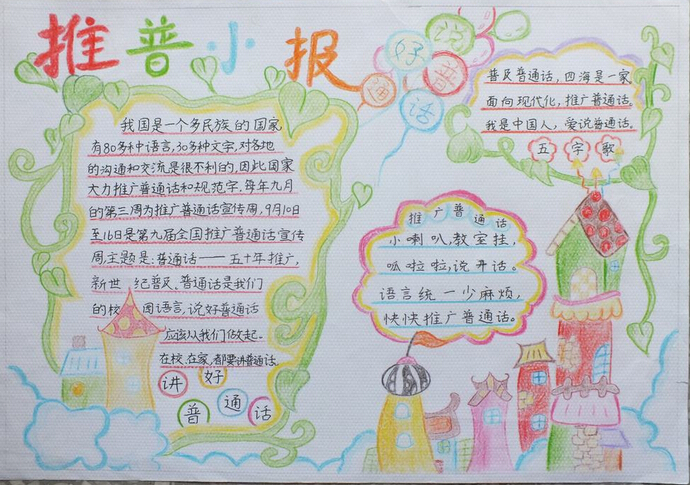 推普小报
说好普通话
我国是一个多民族的国家,
有80多种语言,30多种文字,对各地
的沟通和交流是很不利的,因此国家
大力推广普通话和规范字,每年九月
的第三周为推广普通话宣传周,9月10日
至16日是第九届全国推广普通话宣传
周,主题是:普通话——五十年推广,
新世 纪普及、普通话是我们
的校 园语言,说好普通话
应该从我们做起。
在校、在家,都要讲普通话
讲好
普通话
普及普通话,四海是一家
面向现代化,推广普通话。
我是中国人,爱说普通话。
五字歌
推广普通话
小喇叭,教室挂,
呱啦啦,说开话。
语言统一少麻烦,
快快推广普通话。